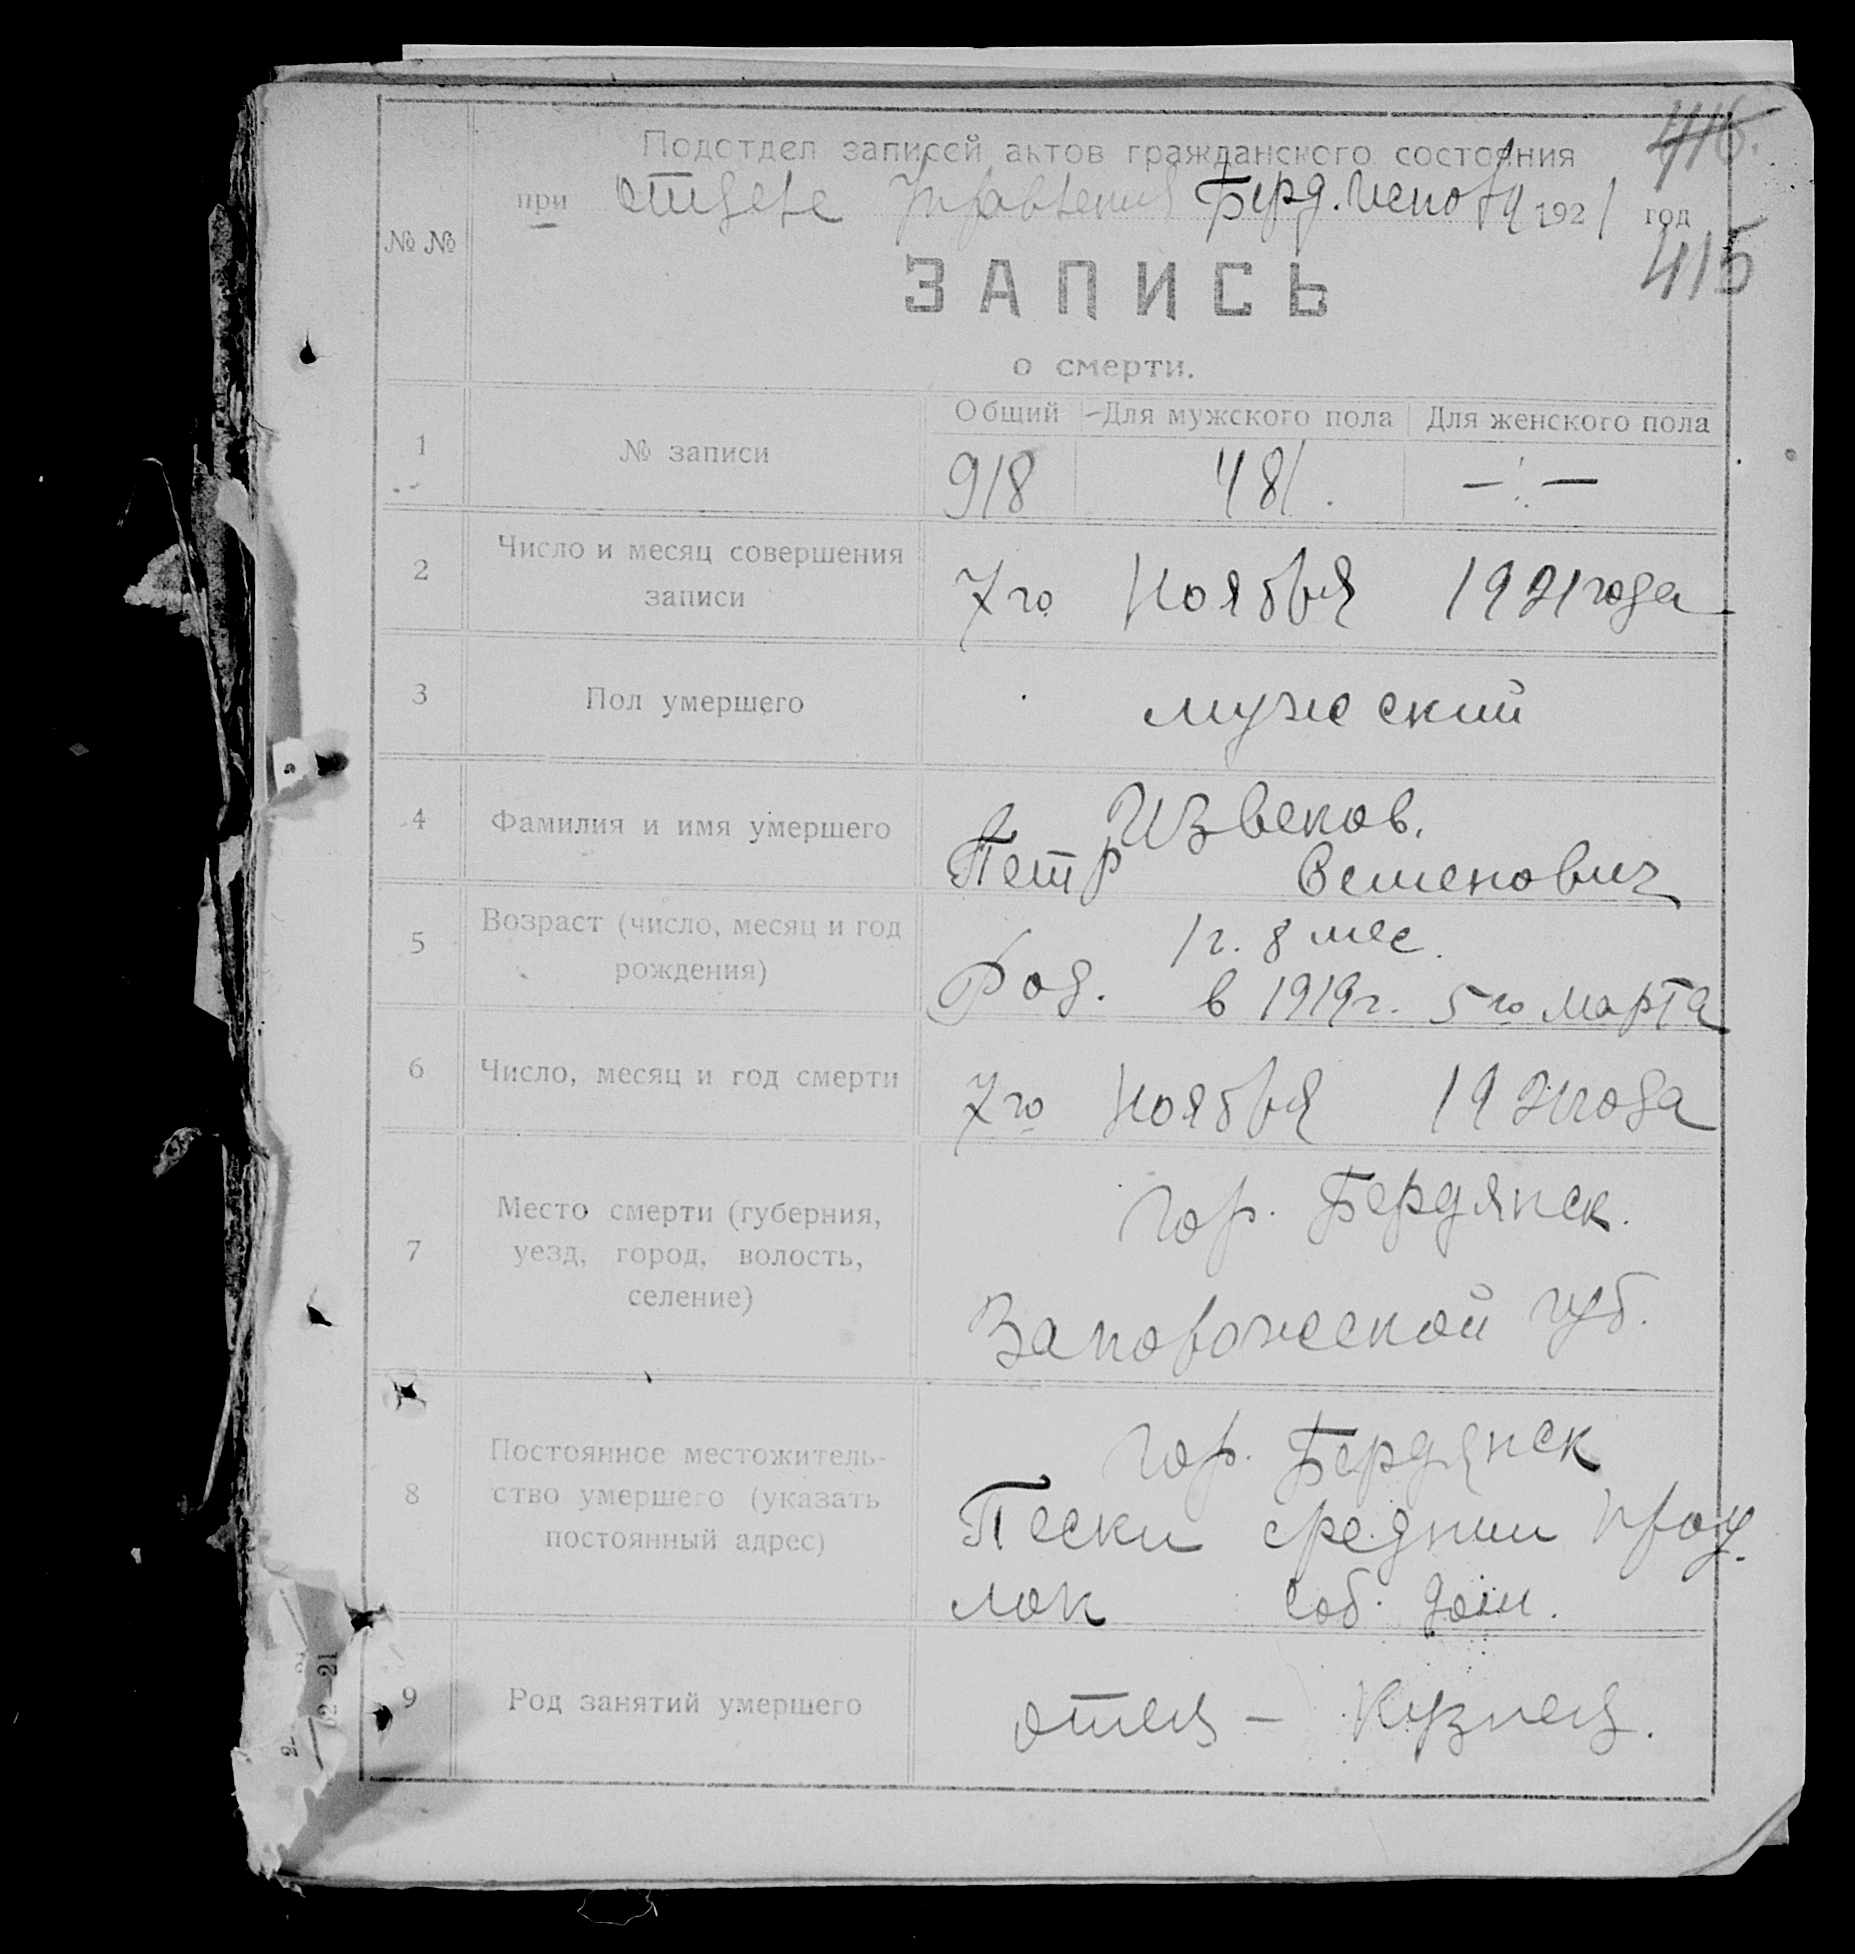 416.
Подотдел записей актов гражданского состояния
при отделе Управления Берд. исполк 1921 год
415
№ №
ЗАПИСЬ
о смерти.
Общий Для мужского пола Для женского пола
1 № записи 918 481. —:—
2 Число и месяц совершения
записи
7го Ноября 1921 года
3 Пол умершего мужеский
4 Фамилия и имя умершего
Извеков.
Петр Семенович
5 Возраст (число, месяц и год
рождения)
1 г. 8 мес.
Род. в 1919 г. 5го марта
6 Число, месяц и год смерти 7го Ноября 1921 года
7 Место смерти (губерния,
уезд, город, волость,
селение)
гор. Бердянск.
Запорожеской губ.
8 Постоянное местожитель-
ство умершего (указать
постоянный адрес)
гор. Бердянск
Пески средний
лок соб. дом.
9 Род занятий умершего отец — Кузнец.
2—21